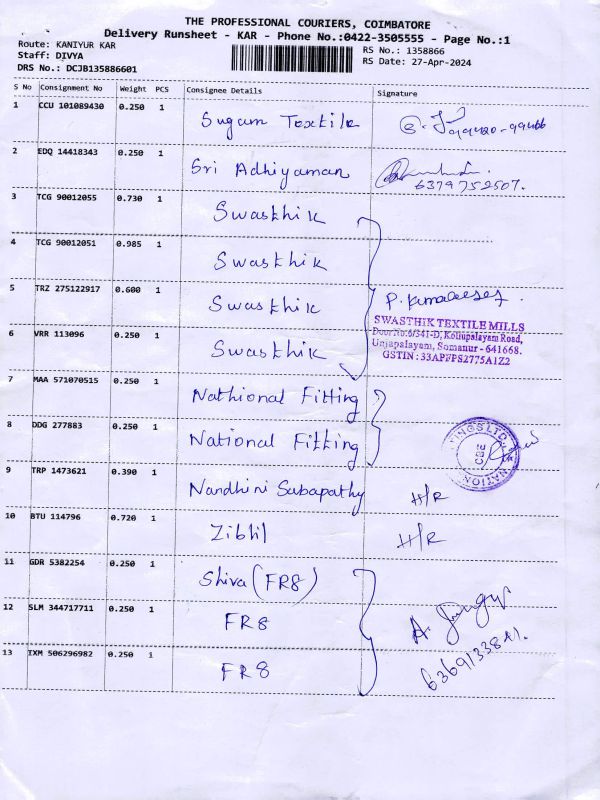 THE PROFESSIONAL COURIERS, COIMBATORE
Delivery Runsheet - KAR - Phone No.:0422-3505555 - Page No.:1
Route: KANIYUR KAR
Staff: DIVYA
DRS No.: DCJB135886601
RS No.: 1358866
RS Date: 27-Apr-2024
S No Consignment No Weight PCS Consignee Details Signature
1 CCU 101089430 0.250 1 Sugam Textile
2 EDQ 14418343 0.250 1 Sri Adhiyaman 6379752507.
3 TCG 90012055 0.730 1 Swasthik
4 TCG 90012051 0.985 1 Swasthik
5 TRZ 275122917 0.600 1 Swasthik
SWASTHIK TEXTILE MILLS
Door No.6/541-D, Kollupalayam Road,
Unjapalayam, Somanur - 641668.
GSTIN : 33APFPS2775A1Z2
6 VRR 113096 0.250 1 Swasthik
7 MAA 571070515 0.250 1 Nathional Fitting
8 DDG 277883 0.250 1 National Fitting
CBE
9 TRP 1473621 0.390 1 Nandhini Sabapathy H/R
10 BTU 114796 0.720 1 H/R
11 GDR 5382254 0.250 1 Shiva (FR8)
12 SLM 344717711 0.250 1 FR8
13 IXM 506296982 0.250 1 FR8